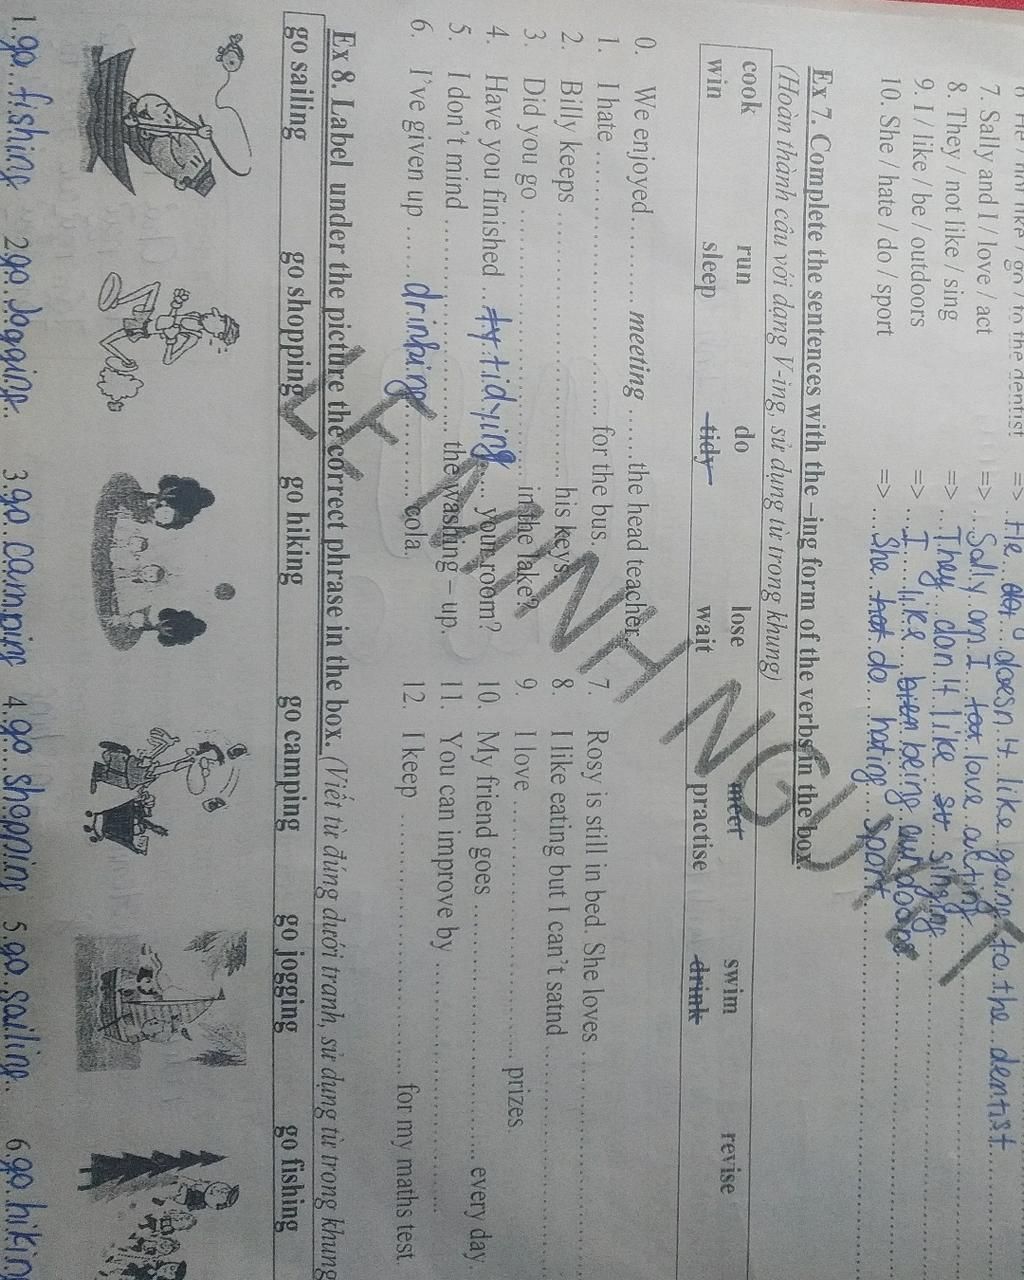 => He doesn't like going to the dentist
7. Sally and I / love / act => Sally am I love acting
8. They / not like / sing => They don't like singing
9. I / like / be / outdoors => I like being outdoors
10. She / hate / do / sport => She do hating sport
Ex 7. Complete the sentences with the –ing form of the verbs in the box
(Hoàn thành câu với dạng V-ing, sử dụng từ trong khung)
cook run do lose meet swim revise
win sleep tidy wait practise drink
0. We enjoyed.......... meeting ......the head teacher.
1. I hate .......................... for the bus.
2. Billy keeps .......................... his keys.
3. Did you go .......................... in the lake?
4. Have you finished ..ty.tidying.. your room?
5. I don't mind .......................... the washing – up.
6. I've given up ......drinking.......... cola.
7. Rosy is still in bed. She loves ..........................
8. I like eating but I can't satnd ..........................
9. I love .......................... prizes.
10. My friend goes .......................... every day.
11. You can improve by ..........................
12. I keep .......................... for my maths test.
Ex 8. Label under the picture the correct phrase in the box. (Viết từ đúng dưới tranh, sử dụng từ trong khung
go sailing go shopping go hiking go camping go jogging go fishing
1. go fishing 2. go Jogging 3. go camping 4. go shopping 5. go sailing 6. go hiking
LE MINH NGUYET